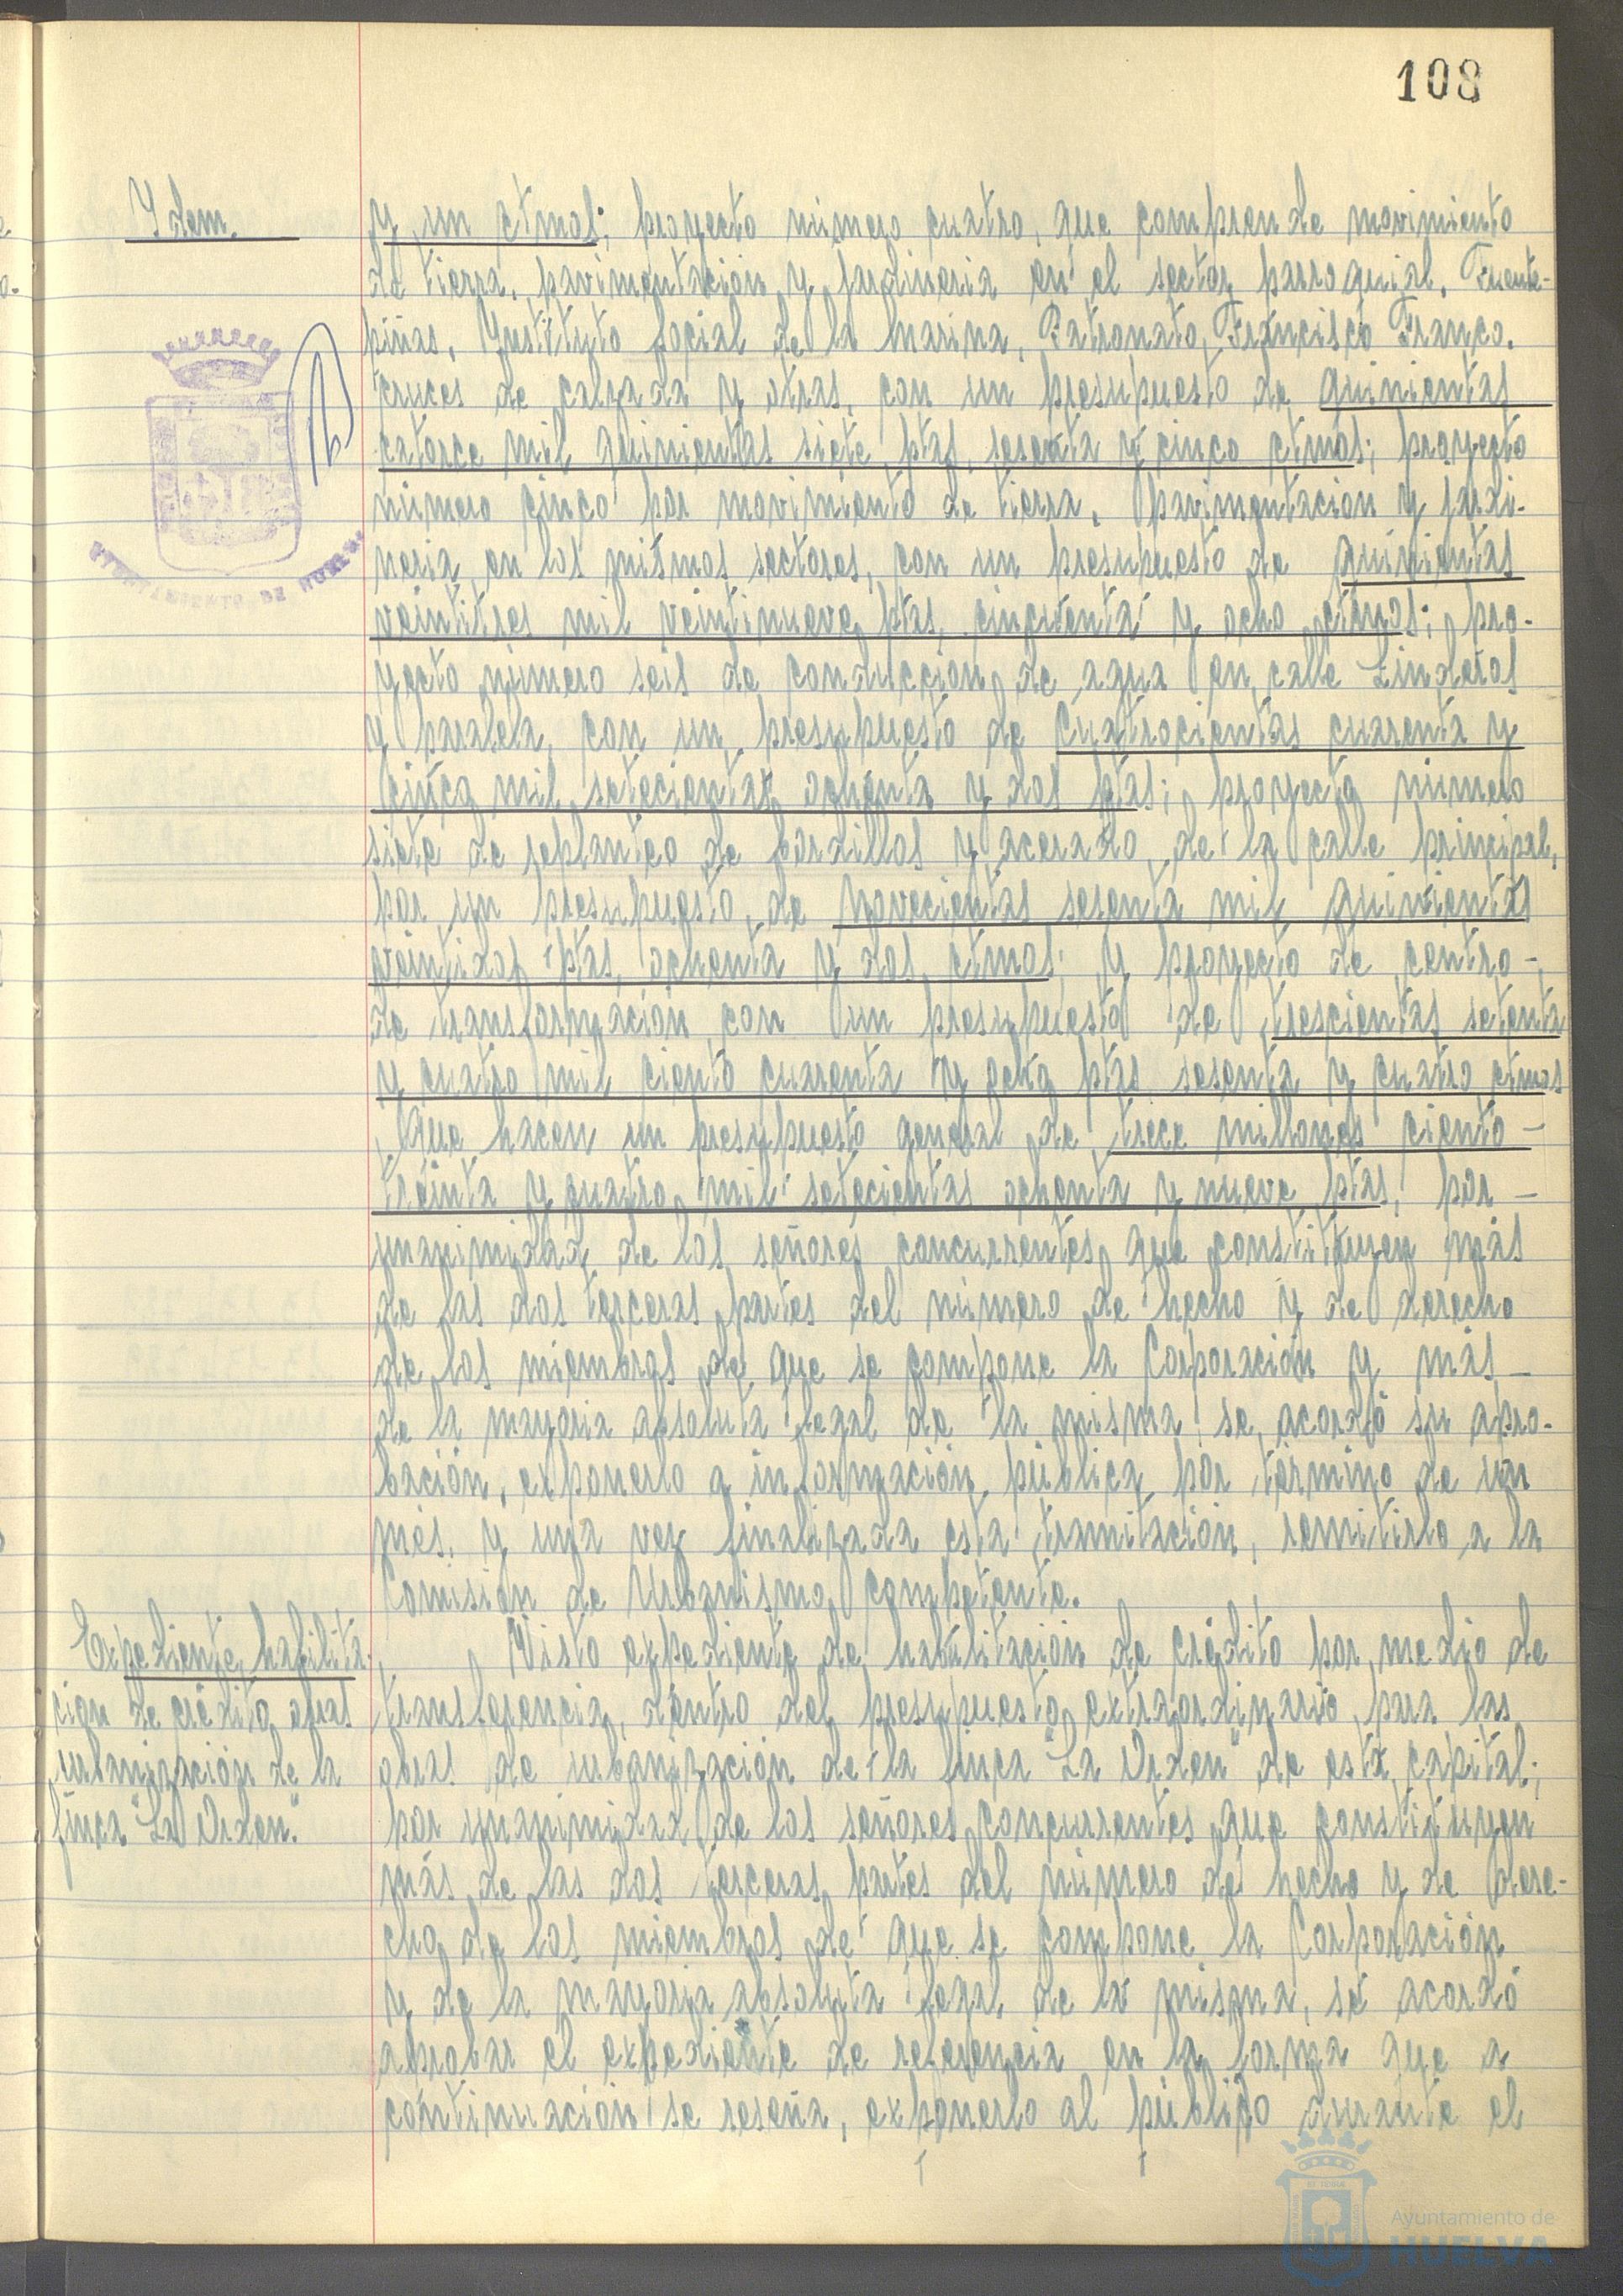 108
Idem.
y un ctmos; proyecto número cuatro, que comprende movimiento
de tierra, pavimentación y jardineria en el sector parroquial, Fuente-
piñas, Ynstituto Social de la Marina, Patronato, Francisco Franco,
cruces de calzada y otras, con un presupuesto de quinientas
catorce mil quinientas siete ptas, sesenta y cinco ctmos; proyecto
número cinco por movimiento de tierra, pavimentación y jardi-
neria, en los mismos sectores, con un presupuesto de quinientas
veintitres mil veintinueve ptas, cincuenta y ocho ctmos; pro-
yecto número seis de conducción de agua en calle Linderos
y paralela, con un presupuesto de cuatrocientas cuarenta y
cinco mil setecientas ochenta y dos ptas; proyecto número
siete de replanteo de bordillos y acerado, de la calle principal,
por un presupuesto, de novecientas sesenta mil quinientas
veintidos ptas, ochenta y dos ctmos; y proyecto de centro-
de transformación con un presupuesto de trescientas setenta
y cuatro mil ciento cuarenta y ocho ptas sesenta y cuatro ctmos
Que hacen un presupuesto general de trece millones ciento-
treinta y cuatro mil setecientas ochenta y nueve ptas, por -
unanimidad de los señores concurrentes que constituyen más
de las dos terceras partes del número de hecho y de derecho
de los miembros de que se compone la Corporación y más -
de la mayoria absoluta legal de la misma, se acordó su apro-
bación, exponerlo a información pública por término de un
més, y una vez finalizada esta tramitación, remitirlo a la
Comisión de Urbanismo Competente.
Expediente habilita-
cion de crédito obras
urbanización de la
finca "La Orden."
Visto expediente de habilitación de crédito por medio de
transferencia, dentro del presupuesto extraordinario para las
obras de urbanización de la finca "La Orden" de esta capital;
por unanimidad de los señores concurrentes que constituyen
más de las dos terceras partes del número de hecho y de dere-
cho de los miembros de que se compone la Corporación
y de la mayoria absoluta legal de la misma, se acordó
aprobar el expediente de referencia en la forma que a
continuación se reseña, exponerlo al público durante el
AYUNTAMIENTO DE HUELVA
Ayuntamiento de
HUELVA